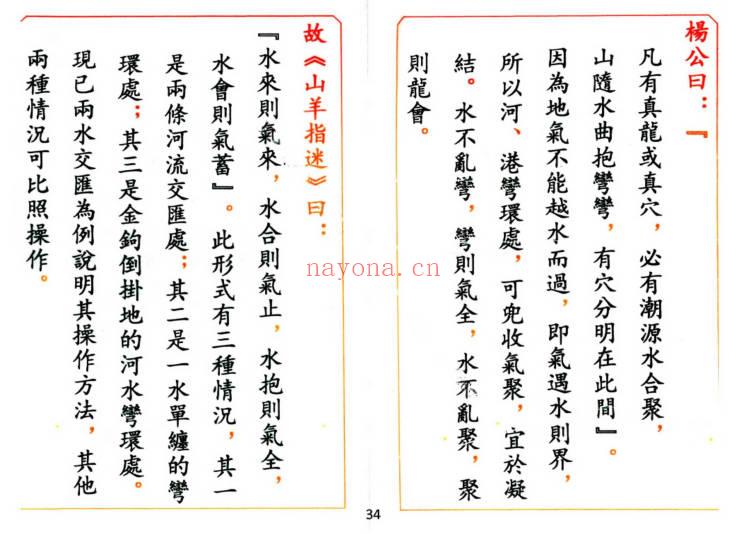 楊公曰：『
凡有真龍或真穴，必有潮源水合聚，
山隨水曲抱彎彎，有穴分明在此間』。
因為地氣不能越水而過，即氣遇水則界，
所以河、港彎環處，可兜收氣聚，宜於凝
結。水不亂彎，彎則氣全，水不亂聚，聚
則龍會。
故《山羊指迷》曰：
『水來則氣來，水合則氣止，水抱則氣全，
水會則氣蓄』。此形式有三種情況，其一
是兩條河流交匯處；其二是一水單纏的彎
環處；其三是金鉤倒掛地的河水彎環處。
現已兩水交匯為例說明其操作方法，其他
兩種情況可比照操作。
nayona.cn
34